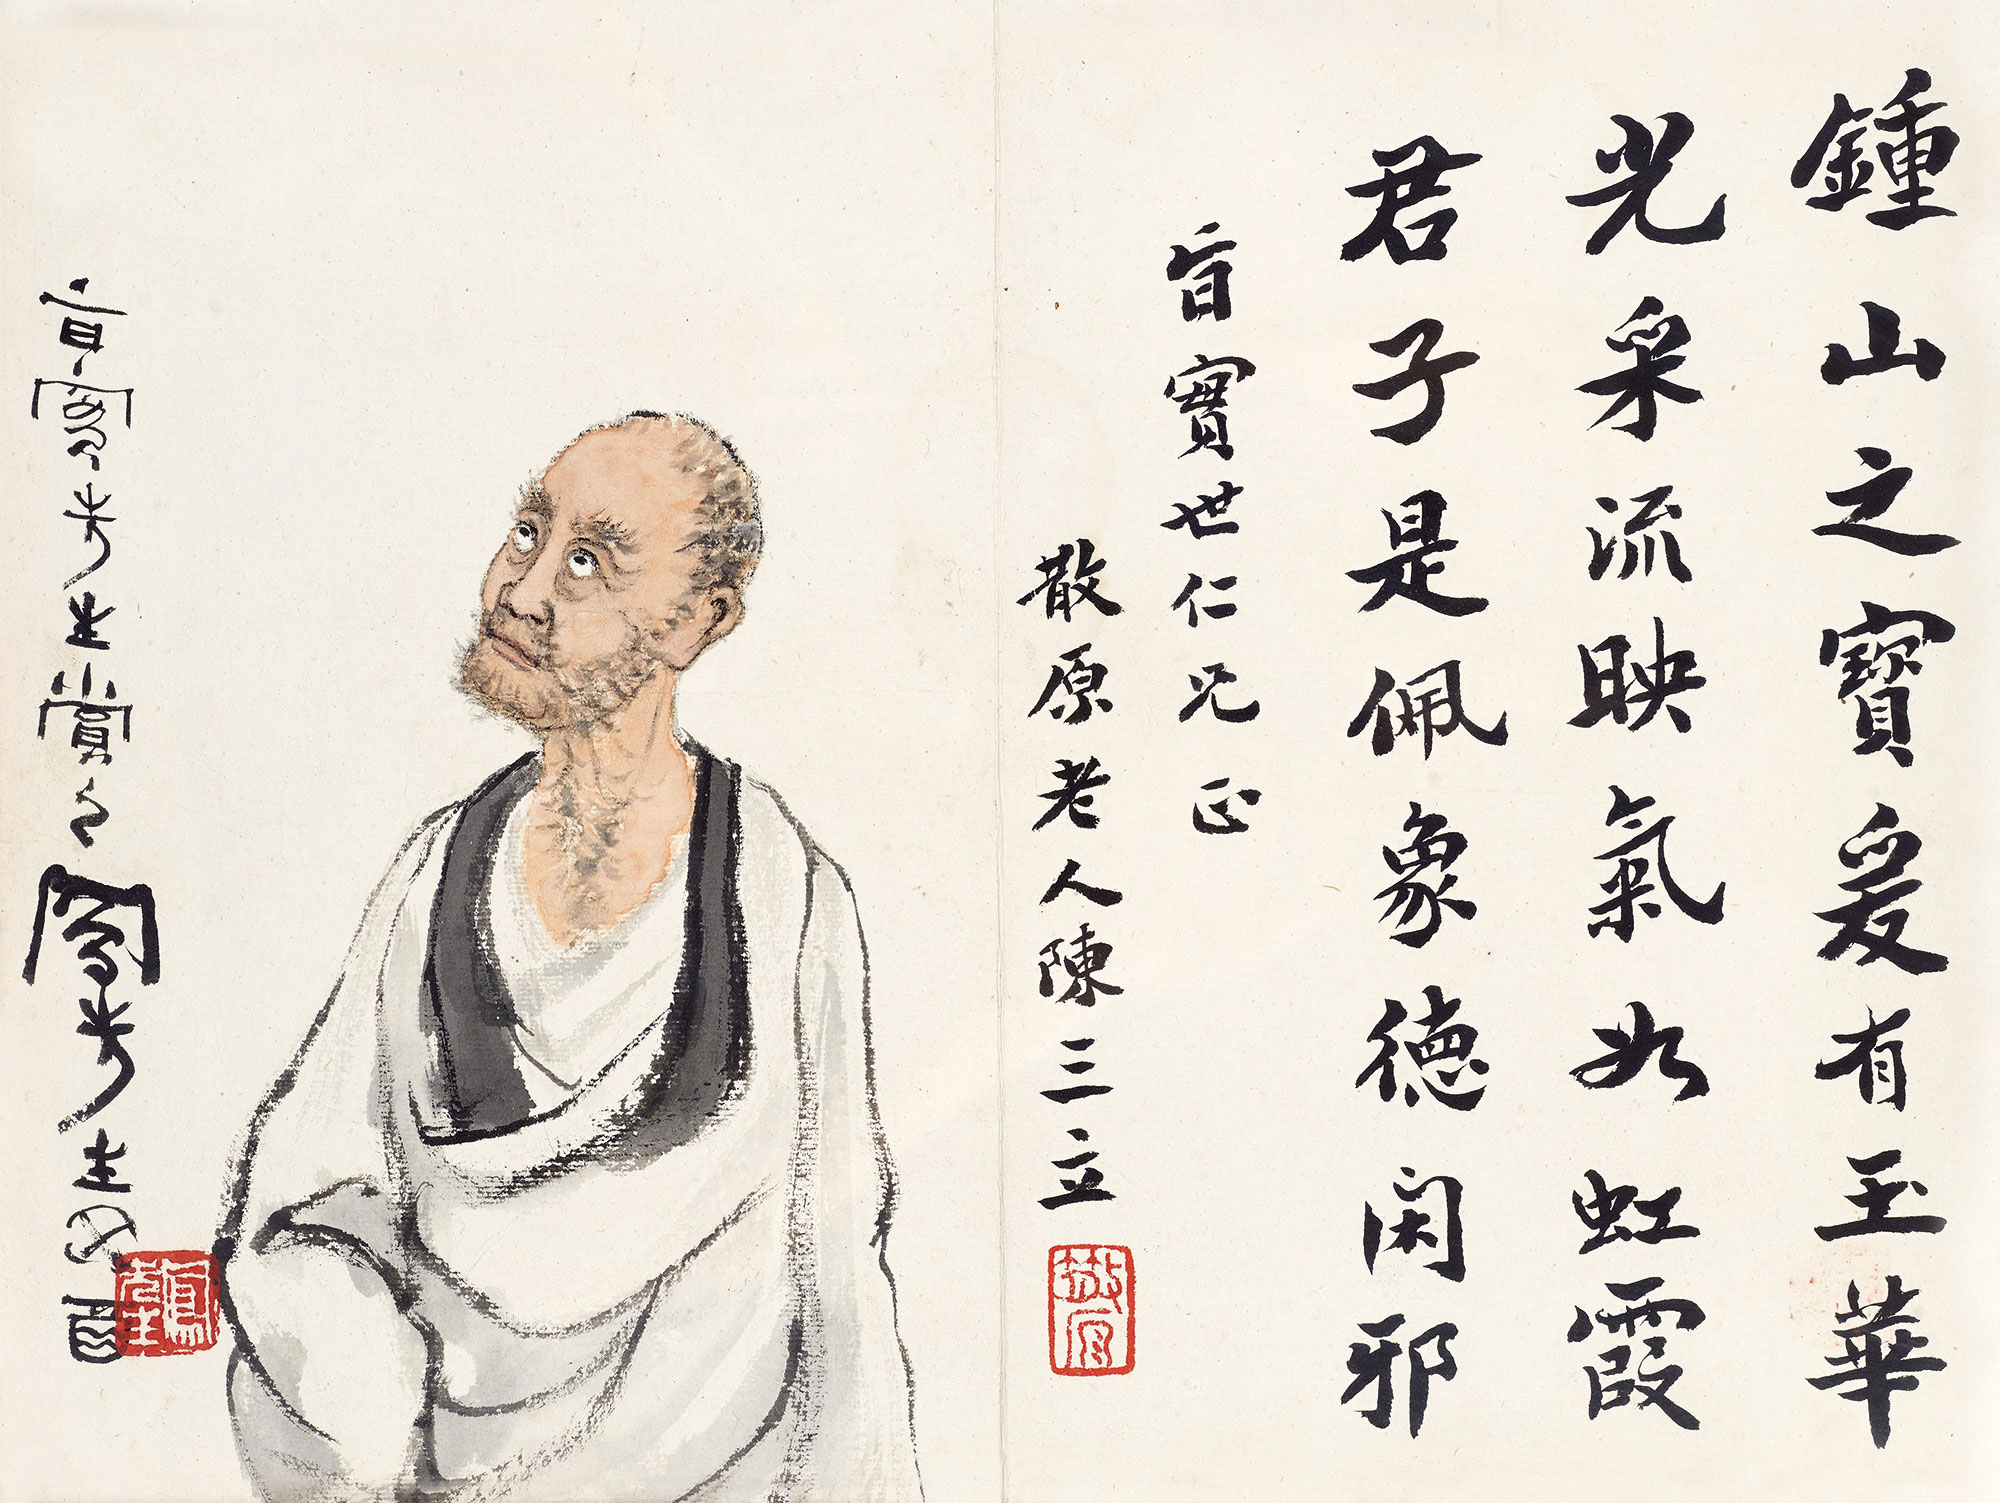 鍾山之寶爰有玉華
光采流映氣如虹霞
君子是佩象德閑邪
實世仁兄正
散原老人陳三立
散原
實先生賞之 鳳先生
鳳先生